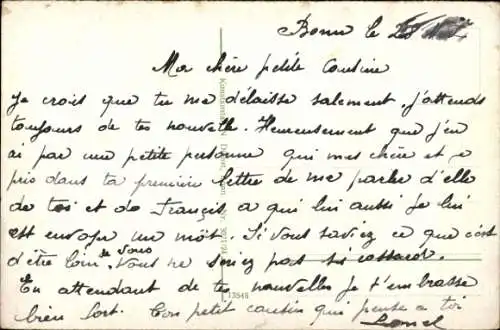 Bonn le
Ma chère petite Cousine
Je crois que tu me délaisse salement. j'attends
toujours de tes nouvelle. Heureusement que j'en
ai par une petite personne qui mes chère et a
pris dans ta première lettre de me parler d'elle
de toi et de François, a qui lui aussi je lui
est envoyer un môt. Si vous saviez ce que c'est
d'être loin de vous. Vous ne seriez pas si
En attendant de tes nouvelles je t'embrasse
bien fort. Ton petit cousin qui pense a toi
13545